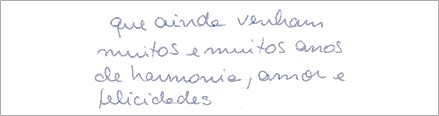 que ainda venham
muitos e muitos anos
de harmonia, amor e
felicidades